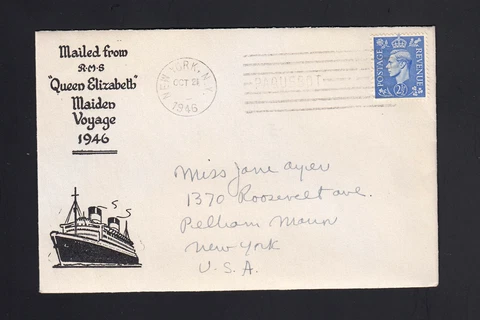 Mailed from
R·M·S
"Queen Elizabeth"
Maiden
Voyage
1946
NEW YORK, N.Y.
OCT 21
1946
PAQUEBOT
POSTAGE
REVENUE
2½
Miss Jane Ayer
1370 Roosevelt ave.
Pelham Manor
New York
U.S.A.